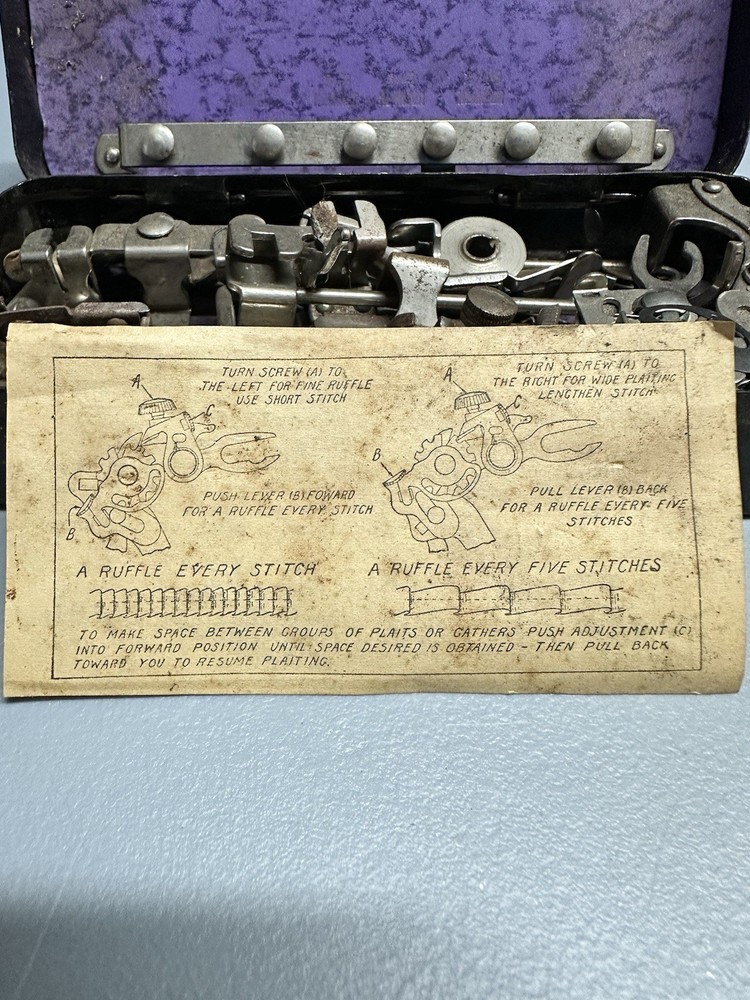 A
TURN SCREW (A) TO
THE LEFT FOR FINE RUFFLE
USE SHORT STITCH
C
PUSH LEVER (B) FOWARD
FOR A RUFFLE EVERY STITCH
B
A RUFFLE EVERY STITCH
A
TURN SCREW (A) TO
THE RIGHT FOR WIDE PLAITING
LENGTHEN STITCH
C
B
PULL LEVER (B) BACK
FOR A RUFFLE EVERY FIVE
STITCHES
A RUFFLE EVERY FIVE STITCHES
TO MAKE SPACE BETWEEN GROUPS OF PLAITS OR GATHERS PUSH ADJUSTMENT (C)
INTO FORWARD POSITION UNTIL SPACE DESIRED IS OBTAINED - THEN PULL BACK
TOWARD YOU TO RESUME PLAITING.